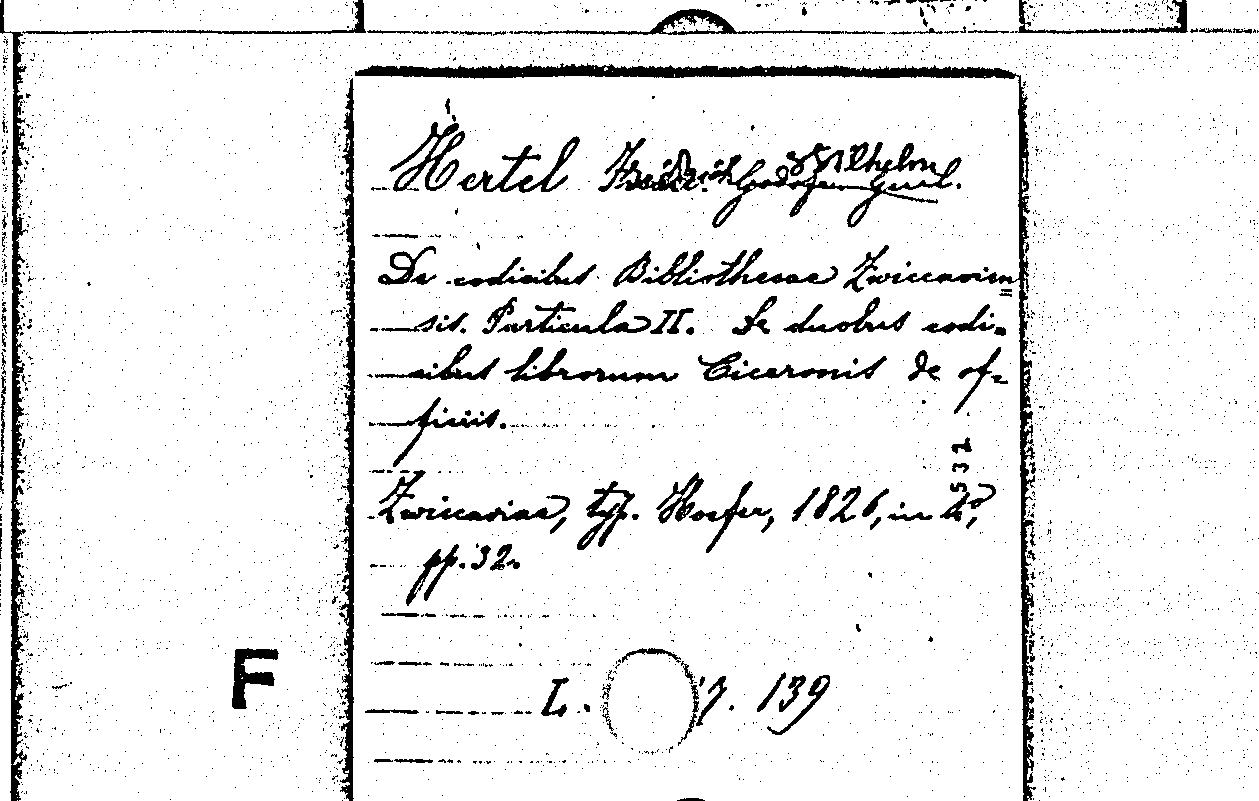 Hertel Friedrich Wilhelm
De codicibus Bibliothecae Zwiccavien
sis. Particula II. De duobus codi-
cibus librorum Ciceronis de of-
ficiis.
532
Zwiccaviae, typ. Hoefer, 1826, in 4°,
pp. 32.
F
L. 7. 139